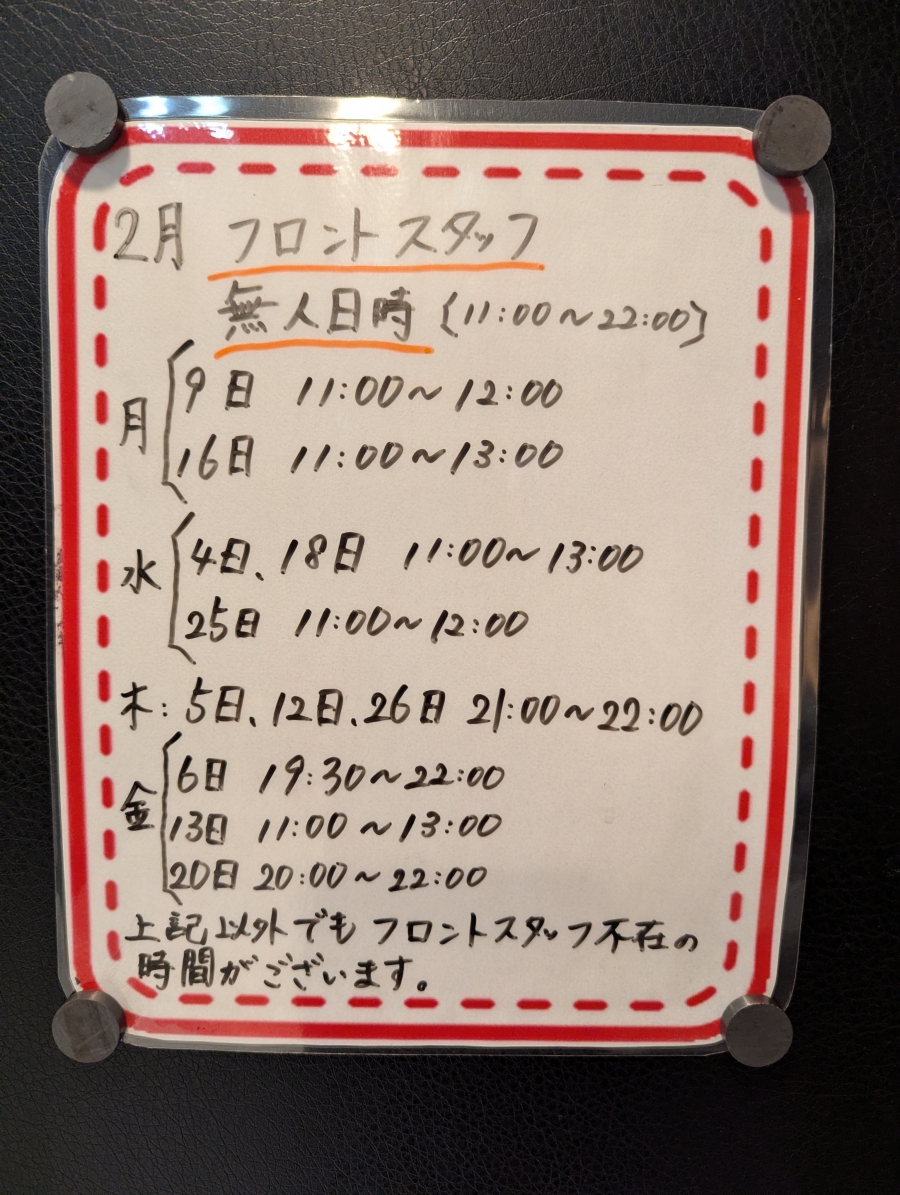 2月 フロントスタッフ
無人日時 {11:00～22:00}
月 9日 11:00～12:00
16日 11:00～13:00
水 4日、18日 11:00～13:00
25日 11:00～12:00
木: 5日、12日、26日 21:00～22:00
金 6日 19:30～22:00
13日 11:00～13:00
20日 20:00～22:00
上記以外でもフロントスタッフ不在の
時間がございます。